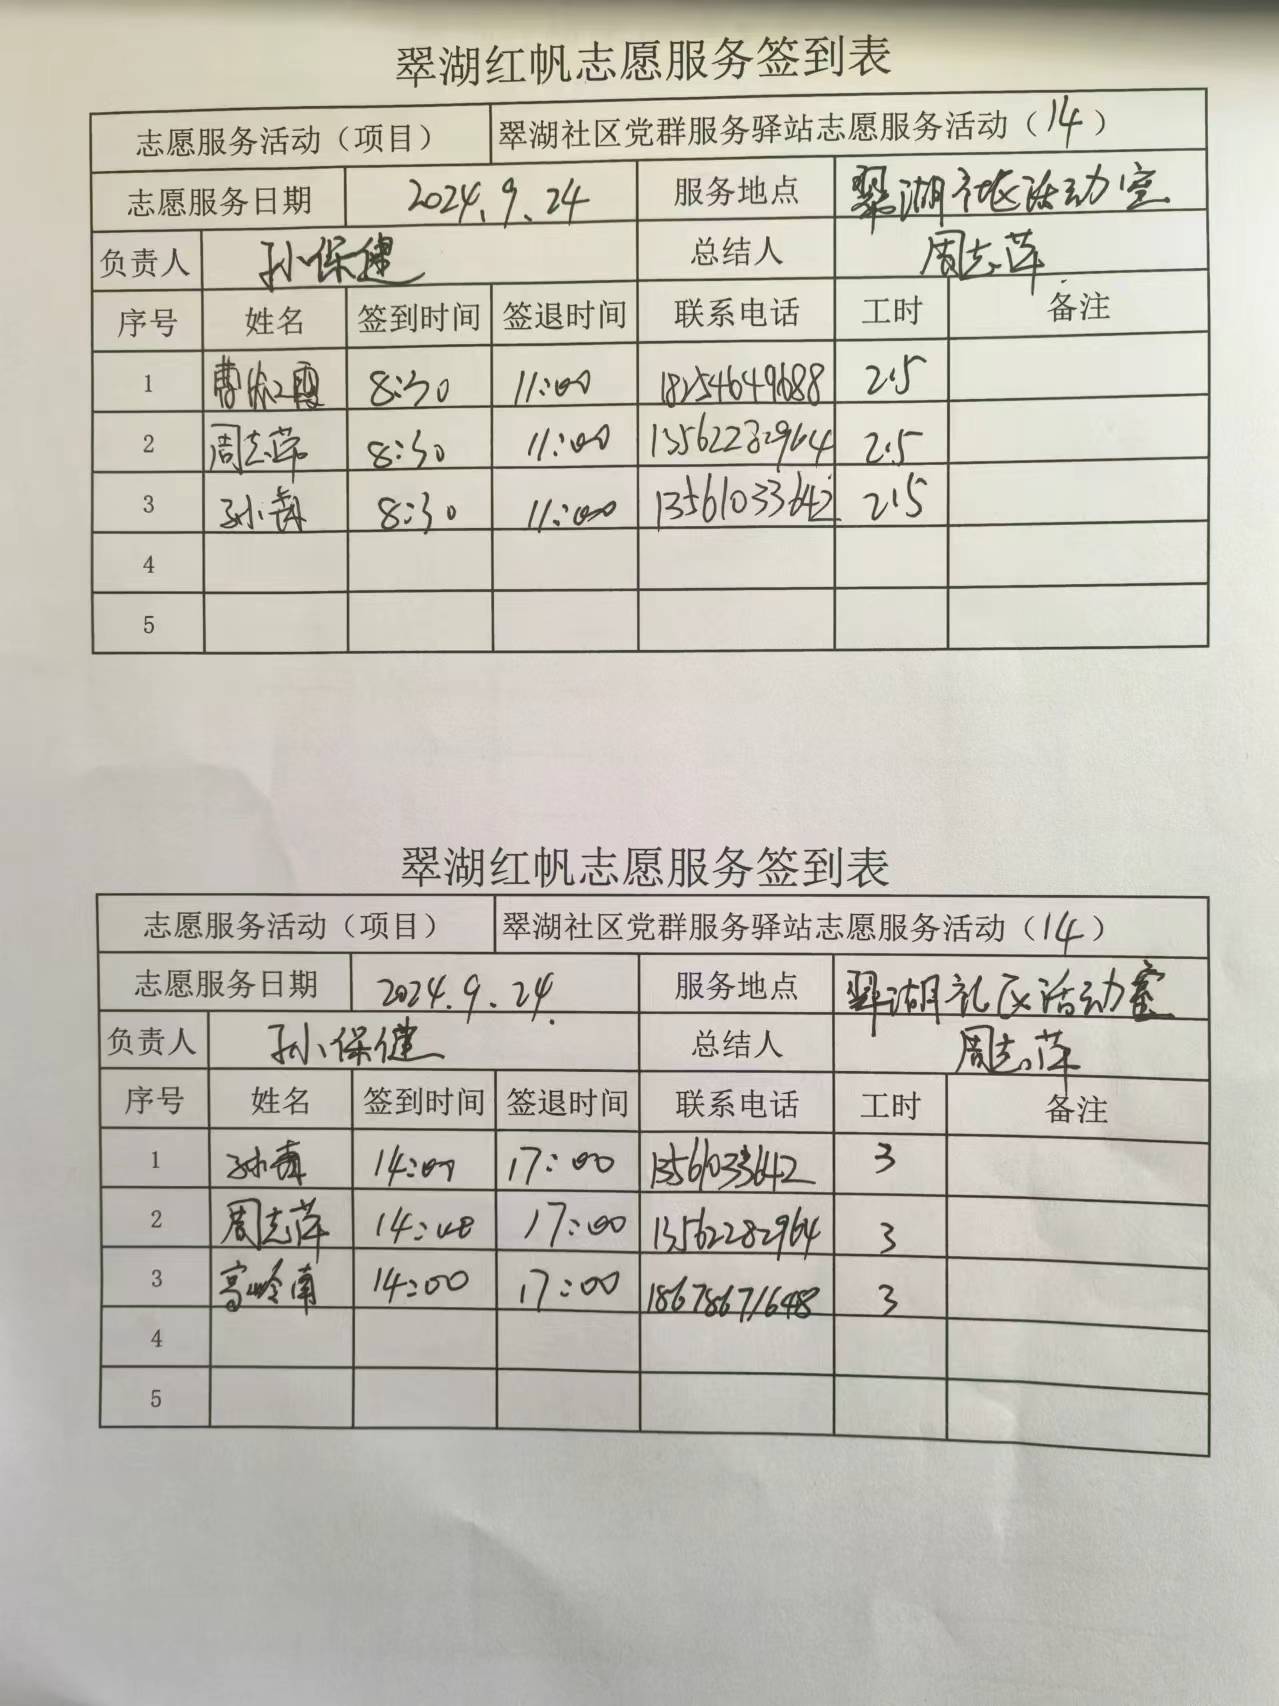 翠湖红帆志愿服务签到表
志愿服务活动（项目） 翠湖社区党群服务驿站志愿服务活动（14）
志愿服务日期 2024.9.24 服务地点 翠湖社区活动室
负责人 孙保健 总结人 周志萍
序号 姓名 签到时间 签退时间 联系电话 工时 备注
1 8:30 11:00 18254649688 2.5
2 周志萍 8:30 11:00 13562282964 2.5
3 孙青 8:30 11:00 13561033642 2.5
4
5
翠湖红帆志愿服务签到表
志愿服务活动（项目） 翠湖社区党群服务驿站志愿服务活动（14）
志愿服务日期 2024.9.24. 服务地点 翠湖社区活动室
负责人 孙保健 总结人 周志萍
序号 姓名 签到时间 签退时间 联系电话 工时 备注
1 孙青 14:00 17:00 13561033642 3
2 周志萍 14:00 17:00 13562282964 3
3 高岭南 14:00 17:00 18678671648 3
4
5